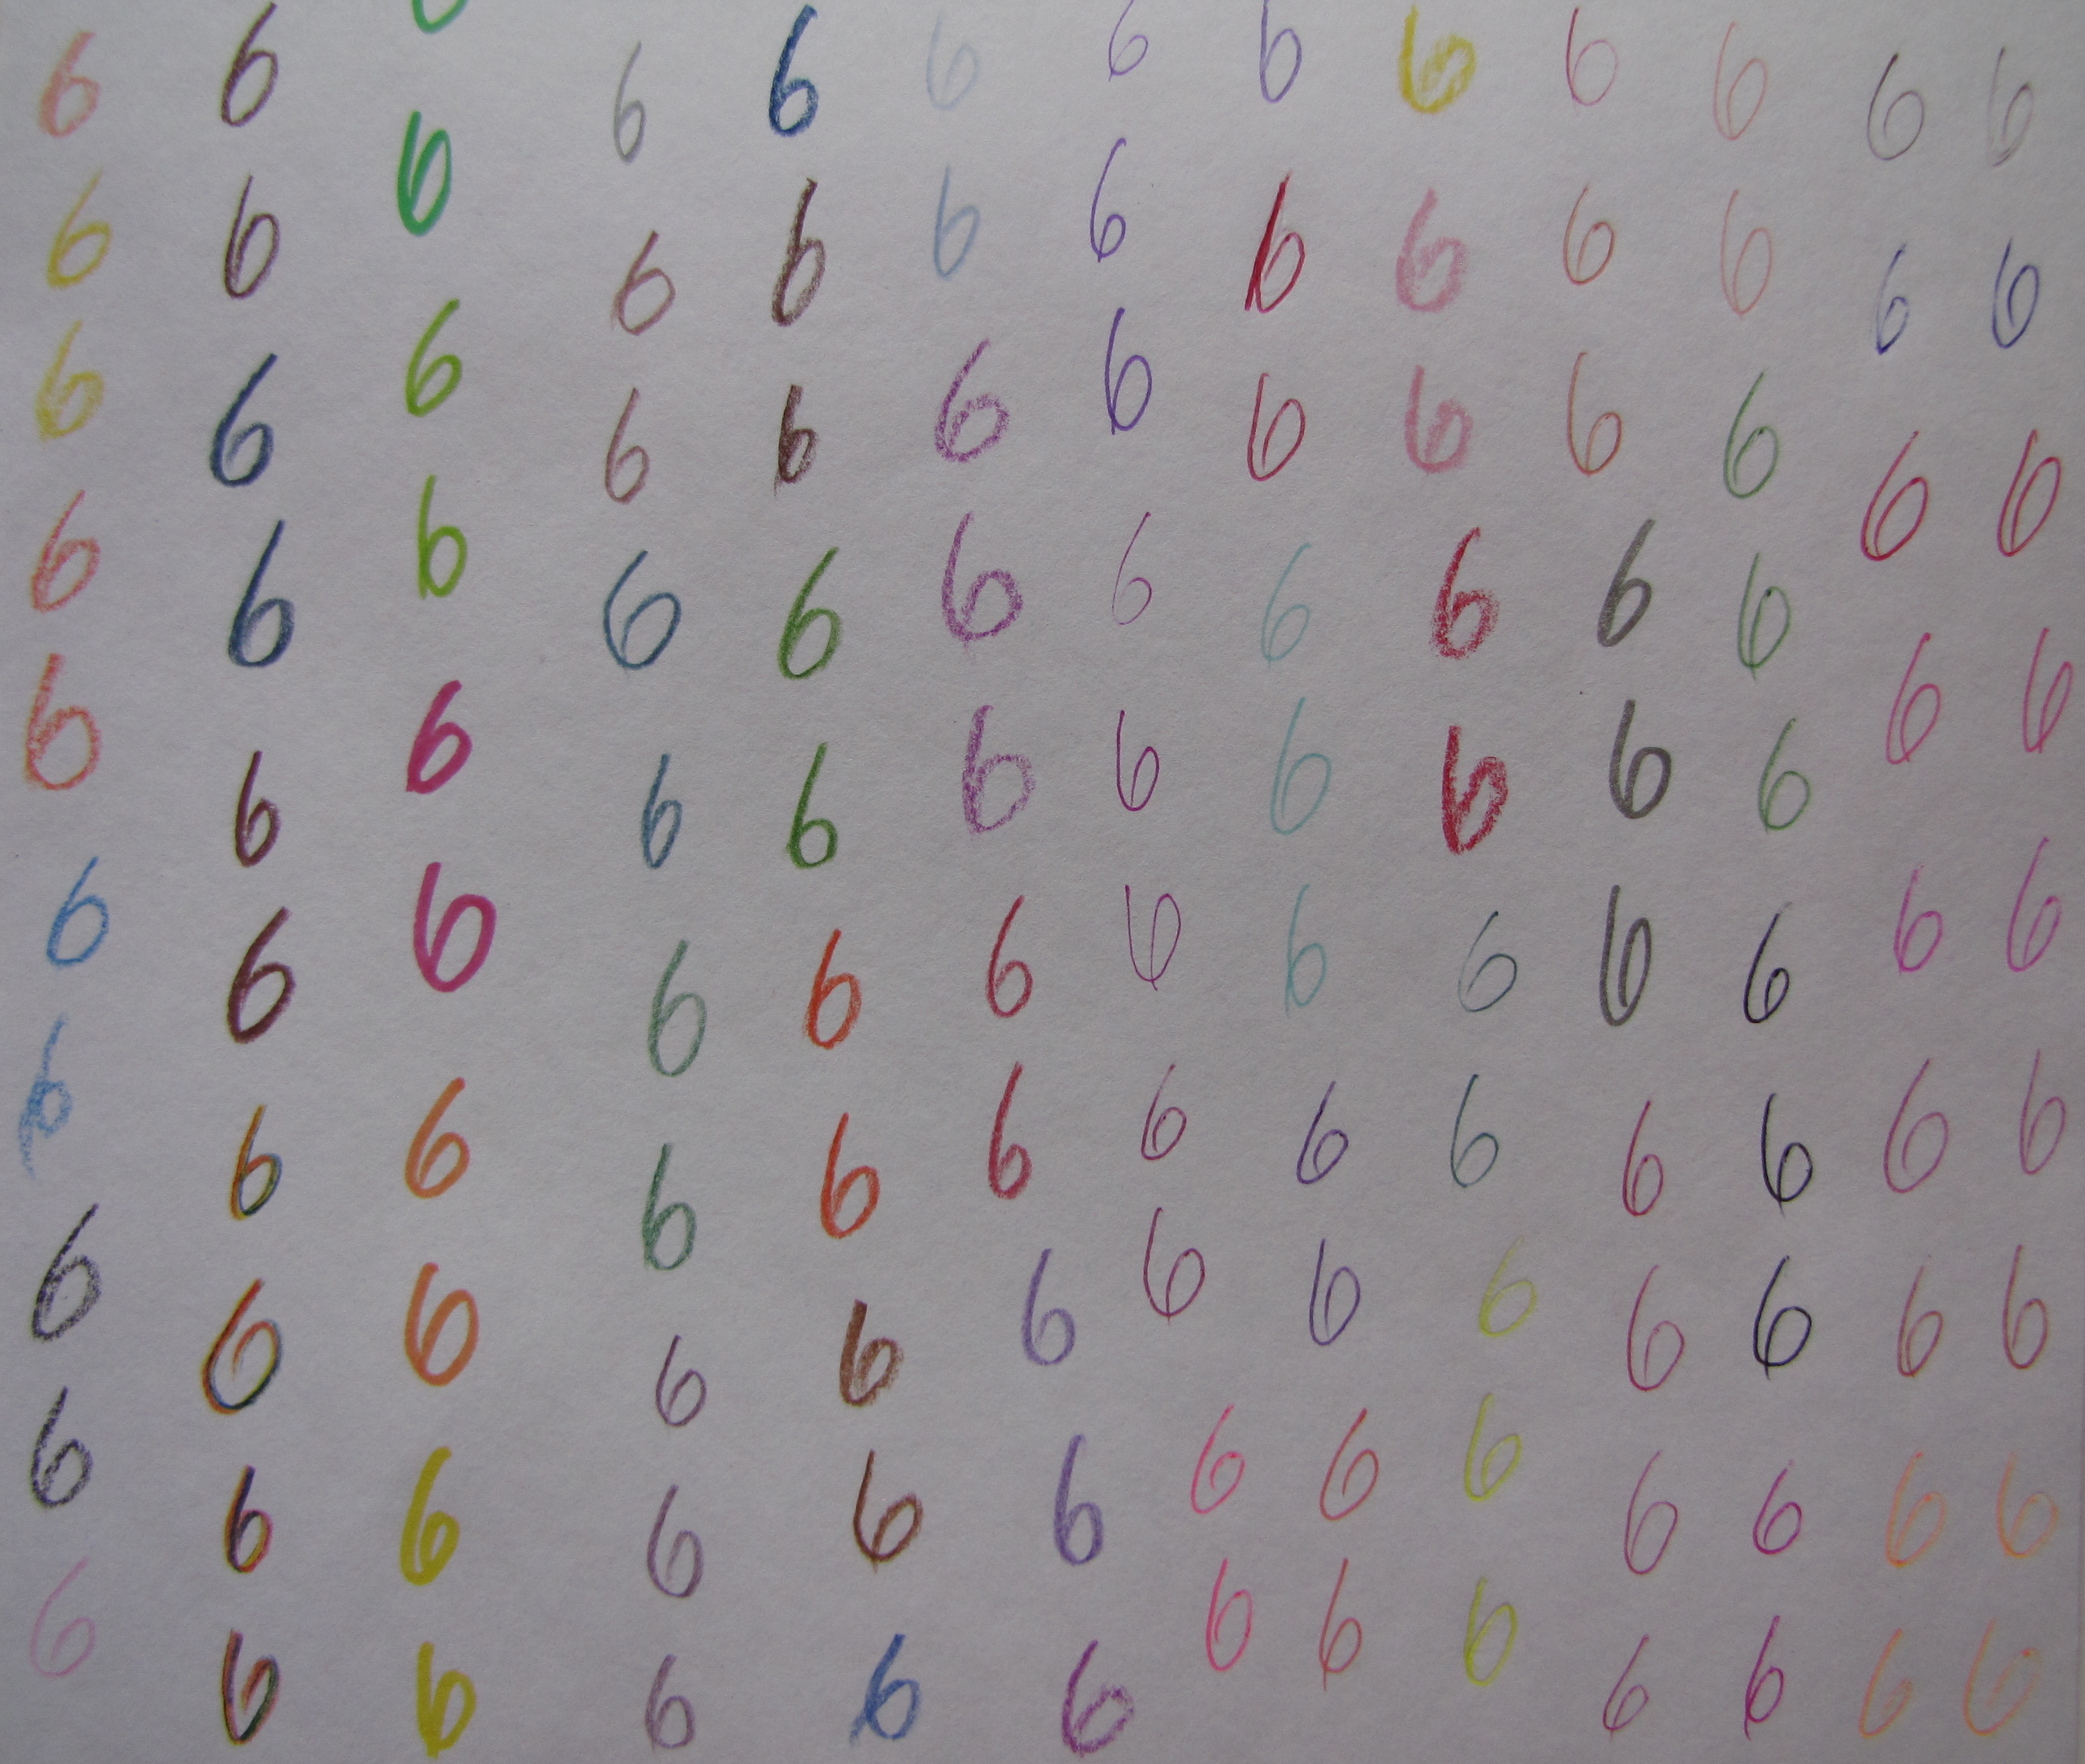 6 6 6 6 6 6 6 6 6 6 6 6
6 6 6 6 6 6 6 6 6 6 6 6 6
6 6 6 6 6 6 6 6 6 6 6 6 6
6 6 6 6 6 6 6 6 6 6 6 6 6
6 6 6 6 6 6 6 6 6 6 6 6 6
6 6 6 6 6 6 6 6 6 6 6 6 6
6 6 6 6 6 6 6 6 6 6 6 6 6
6 6 6 6 6 6 6 6 6 6 6 6 6
6 6 6 6 6 6 6 6 6 6 6 6 6
6 6 6 6 6 6 6 6 6 6 6